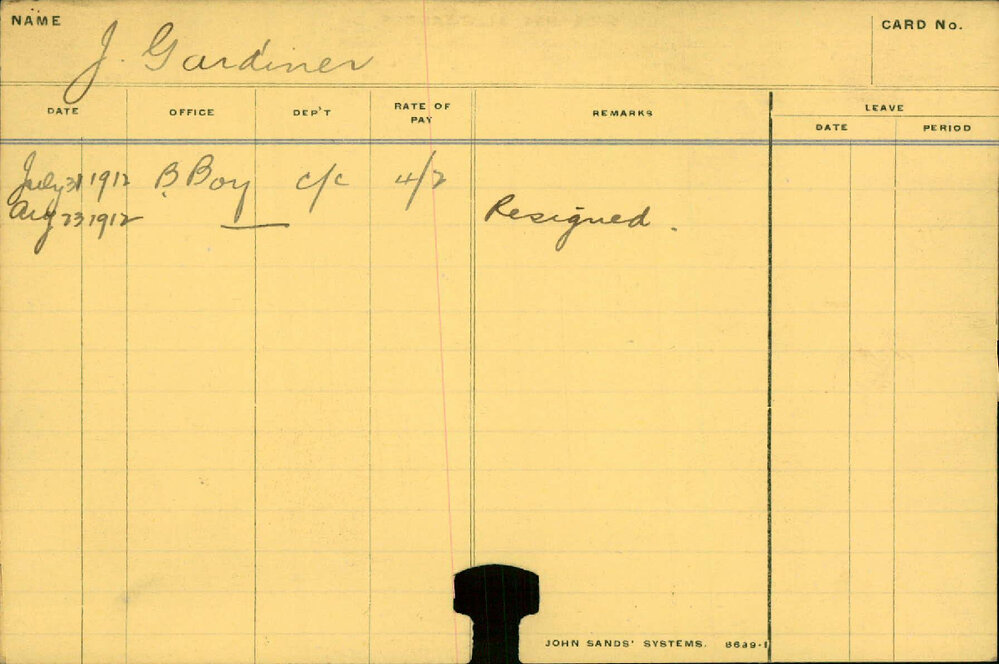 NAME
J. Gardiner
CARD No.
DATE OFFICE DEP'T RATE OF PAY REMARKS LEAVE
DATE PERIOD
July 31 1912 B. Boy c/c 4/2
Aug 23 1912 — Resigned.
JOHN SANDS' SYSTEMS. 8639-1